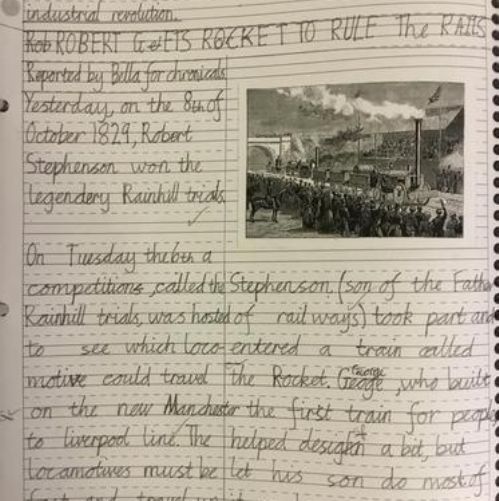 industrial revolution.
Rob ROBERT GETS ROCKET TO RULE The RAILS
Reported by Bella for chronicals
Yesterday, on the 8th of
October 1829, Robert
Stephenson won the
legendery Rainhill trials.
On Tuesday the 6th a
competitions, called the
Rainhill trials, was hosted
to see which loco-
motive could travel
on the new Manchester
to liverpool line. The
locomotives must be
fast and travel
Stephenson, (son of the Father
of railways) took part and
entered a train called
The Rocket. Geoge George, who built
the first train for people
helped design it a bit, but
let his son do most of